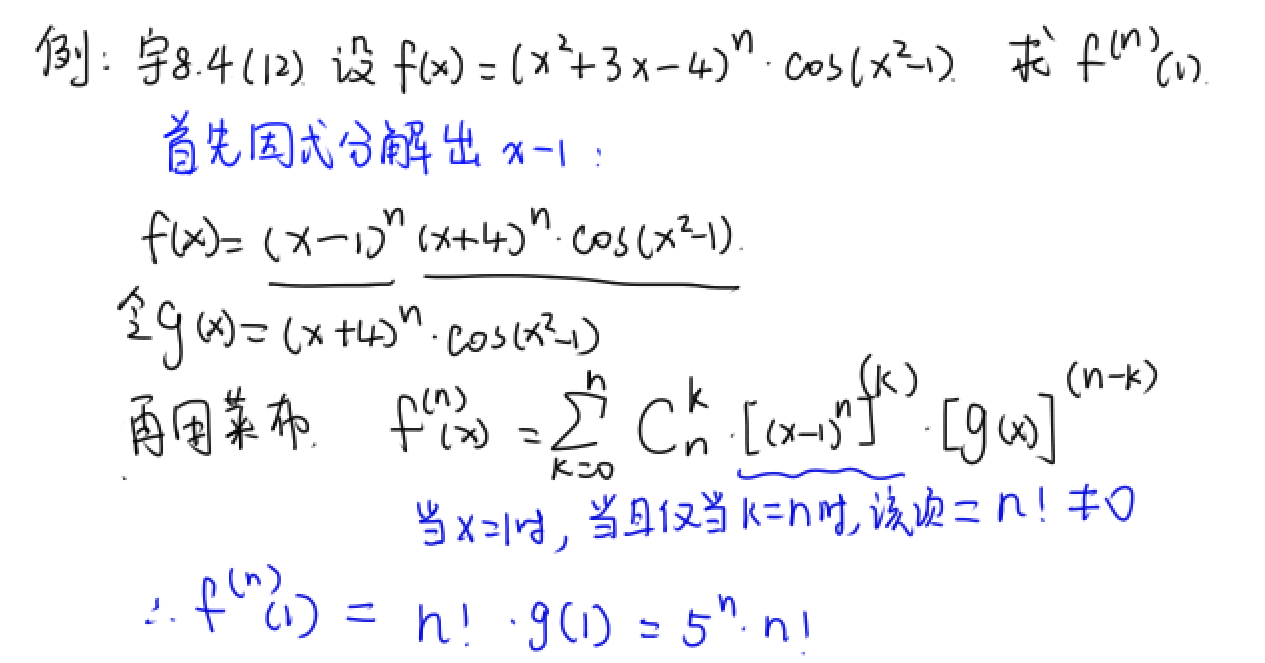 例: 宇8.4(12) 设 f(x) = (x²+3x-4)ⁿ·cos(x²-1). 求 f⁽ⁿ⁾(1).
首先因式分解出 x-1:
f(x) = (x-1)ⁿ (x+4)ⁿ·cos(x²-1).
令g(x) = (x+4)ⁿ·cos(x²-1)
再用莱布. f⁽ⁿ⁾(x) = ∑_{k=0}^{n} C_n^k·[(x-1)ⁿ]^{(k)}·[g(x)]^{(n-k)}
当x=1时, 当且仅当k=n时, 该项=n! ≠0
∴ f⁽ⁿ⁾(1) = n!·g(1) = 5ⁿ·n!